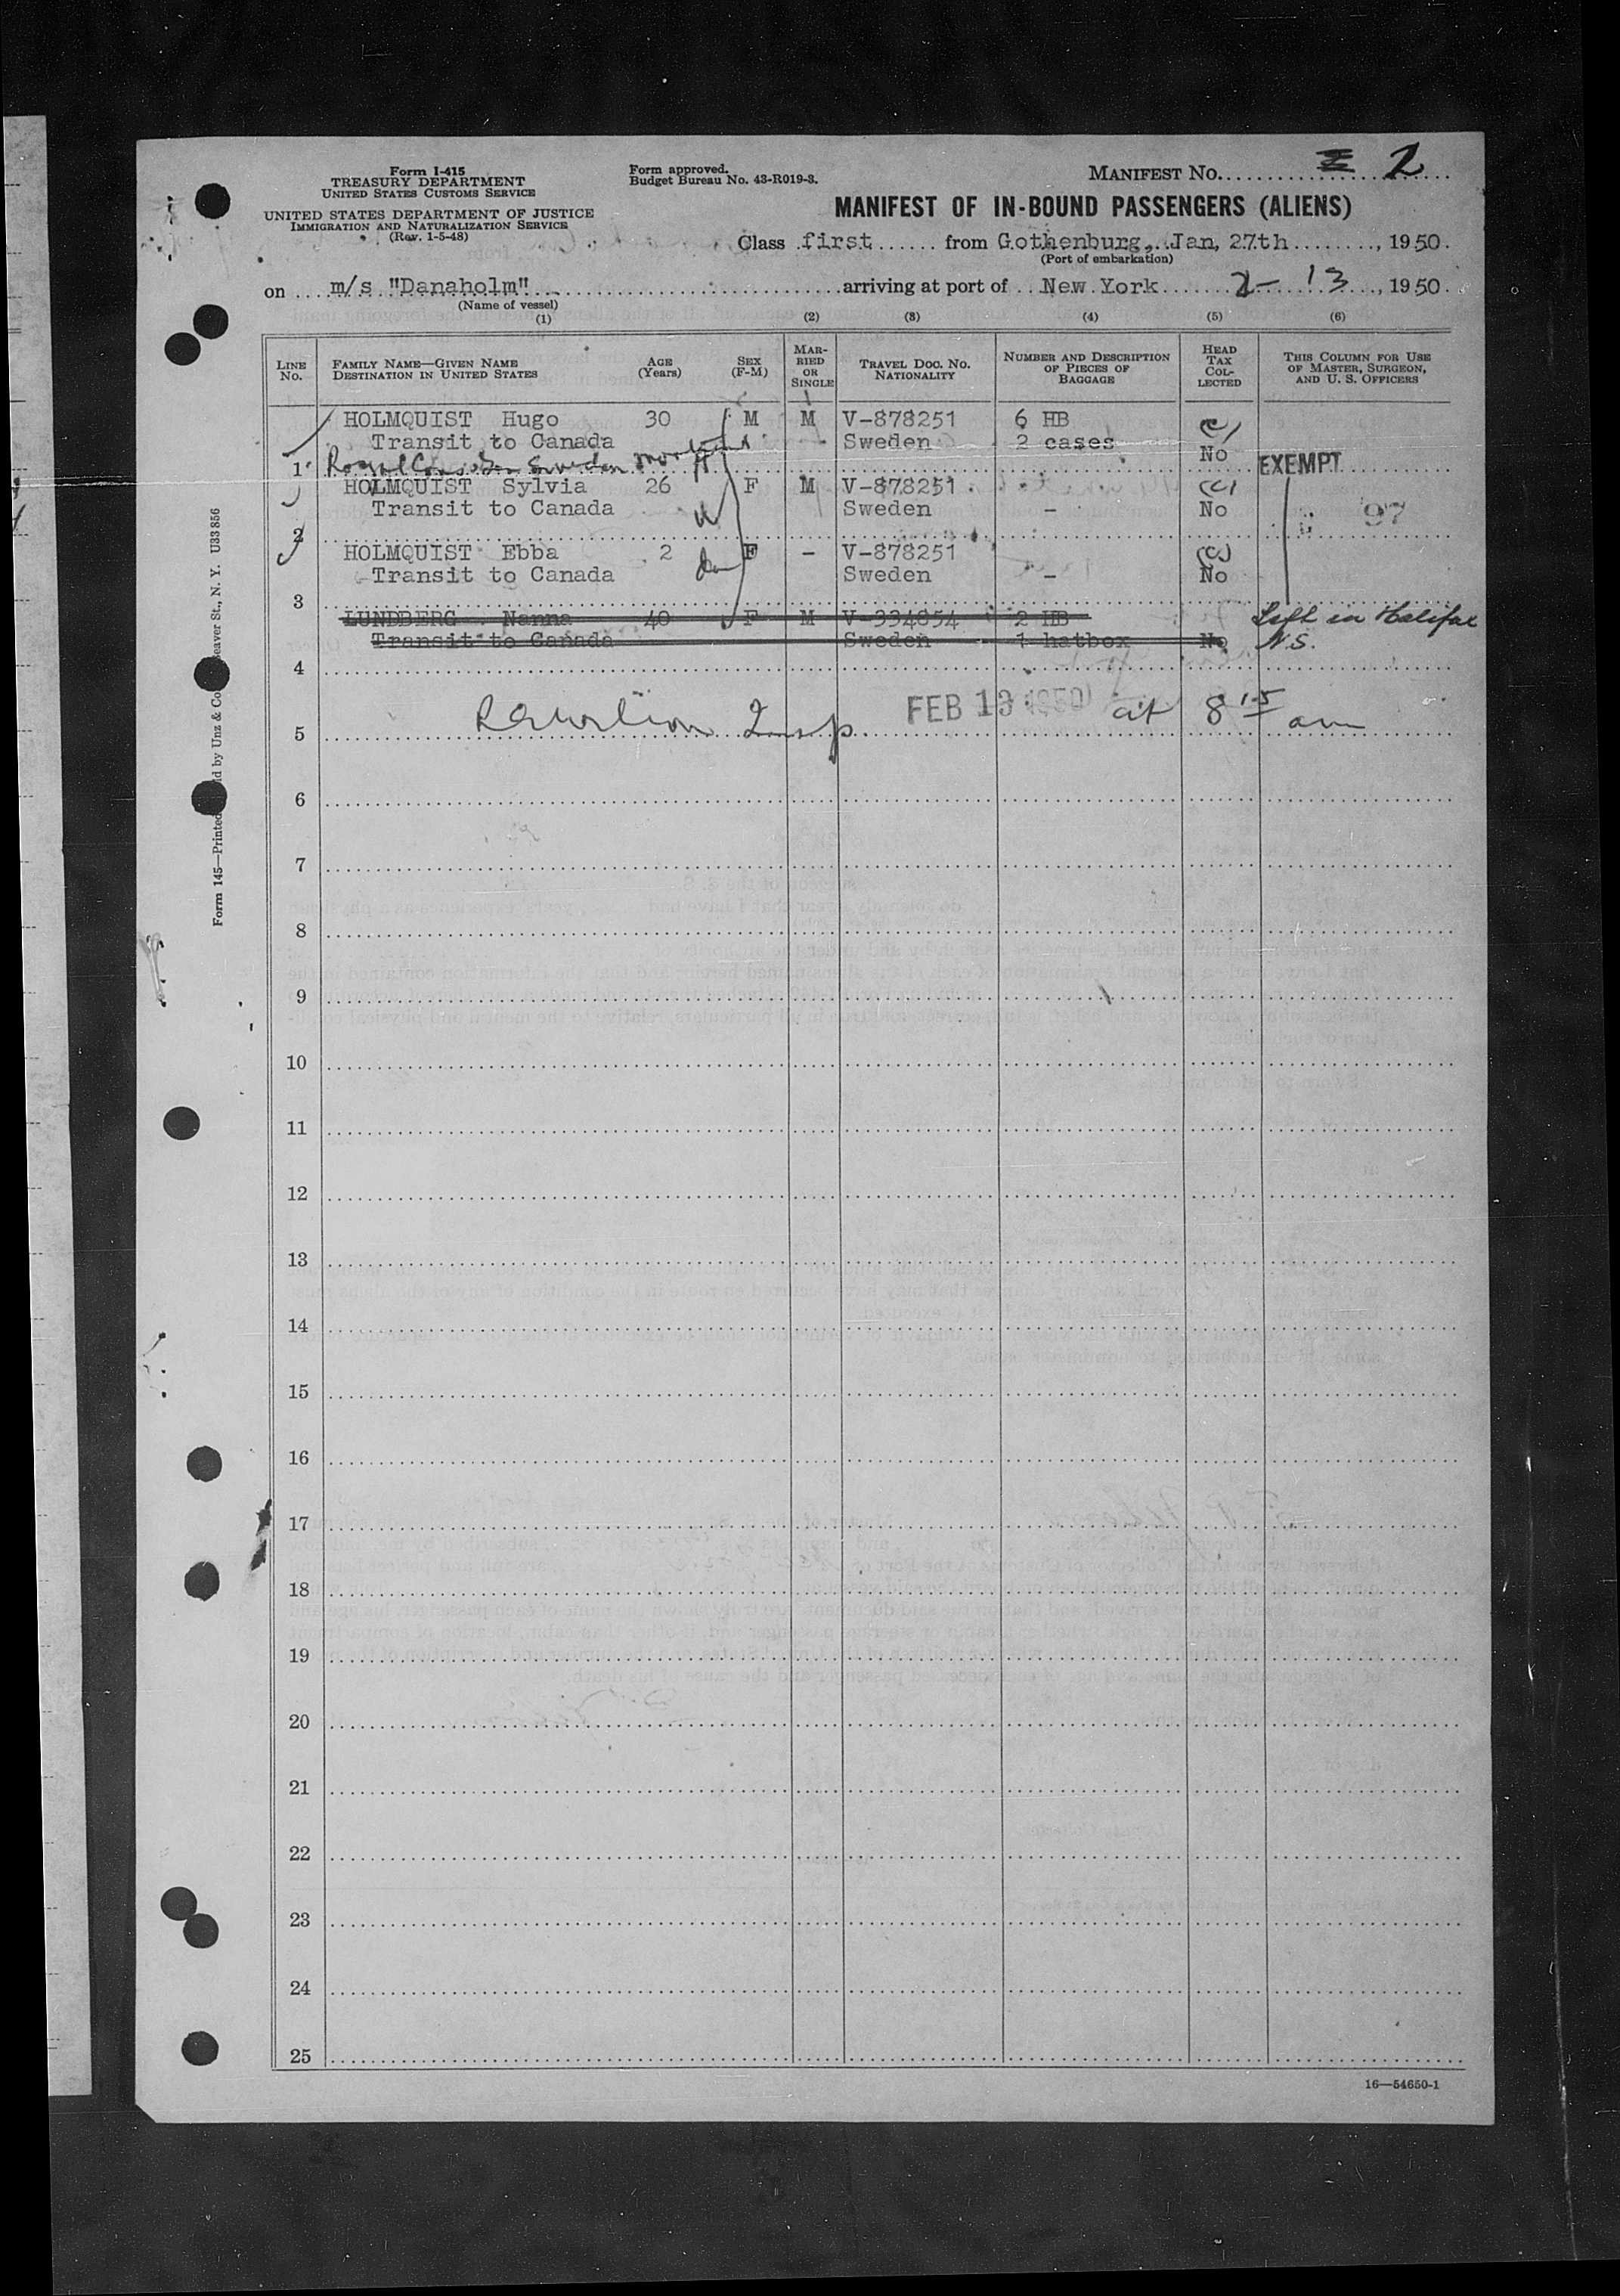 Form I-415
TREASURY DEPARTMENT
UNITED STATES CUSTOMS SERVICE
UNITED STATES DEPARTMENT OF JUSTICE
IMMIGRATION AND NATURALIZATION SERVICE
(Rev. 1-5-48)
Form approved.
Budget Bureau No. 43-R019-3.
MANIFEST No. 2
MANIFEST OF IN-BOUND PASSENGERS (ALIENS)
Class first from Gothenburg, Jan, 27th, 1950.
(Port of embarkation)
on m/s "Danaholm" arriving at port of New York 2-13, 1950.
(Name of vessel)
(1) (2) (3) (4) (5) (6)
LINE No. FAMILY NAME—GIVEN NAME DESTINATION IN UNITED STATES AGE (Years) SEX (F-M) MARRIED OR SINGLE TRAVEL DOC. NO. NATIONALITY NUMBER AND DESCRIPTION OF PIECES OF BAGGAGE HEAD TAX COLLECTED THIS COLUMN FOR USE OF MASTER, SURGEON, AND U. S. OFFICERS
HOLMQUIST Hugo 30 M M V-878251 6 HB (c)
Transit to Canada Sweden 2 cases No
1 Sweden EXEMPT
HOLMQUIST Sylvia 26 F M V-878251 (c)
Transit to Canada W Sweden - No 97
2
HOLMQUIST Ebba 2 F - V-878251 (c)
Transit to Canada Sweden - No
3
LUNDBERG Nanna 40 F M V-334854 2 HB Left in Halifax
Transit to Canada Sweden 1 hatbox No N.S.
4
5 Insp FEB 13 1950 at 8 15 am
6
7
8
9
10
11
12
13
14
15
16
17
18
19
20
21
22
23
24
25
16—54650-1
Form 145—Printed by Unz & Co. Beaver St., N. Y. U33856